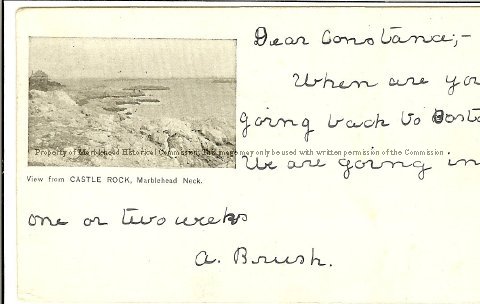 Dear Constance;-
When are you
going back to Bosto
Property of Marblehead Historical Commission. This image may only be used with written permission of the Commission
We are going in
View from CASTLE ROCK, Marblehead Neck.
one or two weeks
A. Brush.